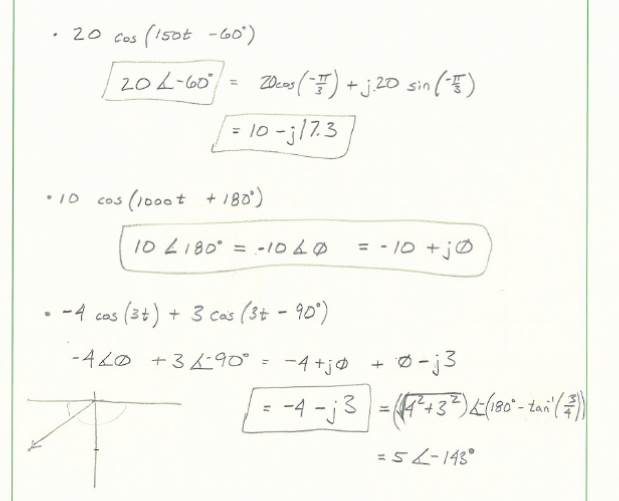 • 20 cos(150t -60°)
20∠-60° = 20cos(-π/3) + j20 sin(-π/3)
= 10 - j17.3
• 10 cos(1000t + 180°)
10∠180° = -10∠Ø = -10 + jØ
• -4 cos(3t) + 3 cos(3t - 90°)
-4∠Ø + 3∠-90° = -4 + jØ + Ø - j3
= -4 - j3 = (√4²+3²)∠-(180° - tan⁻¹(3/4))
= 5∠-143°